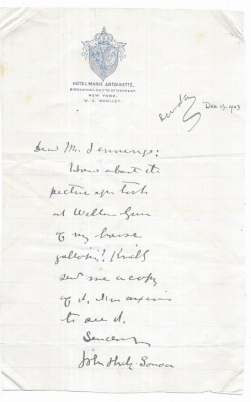 HOTEL MARIE ANTOINETTE,
BROADWAY, 66TH & 67TH STREETS
NEW YORK.
W. S. WOOLLEY.
Sunday
Dec 13, 1903
Dear Mr. Jennings:
How about the
picture you took
at Willow Grove
of my horse
galloping? Kindly
send me a copy
of it. I'm anxious
to see it.
Sincerely
John Philip Sousa